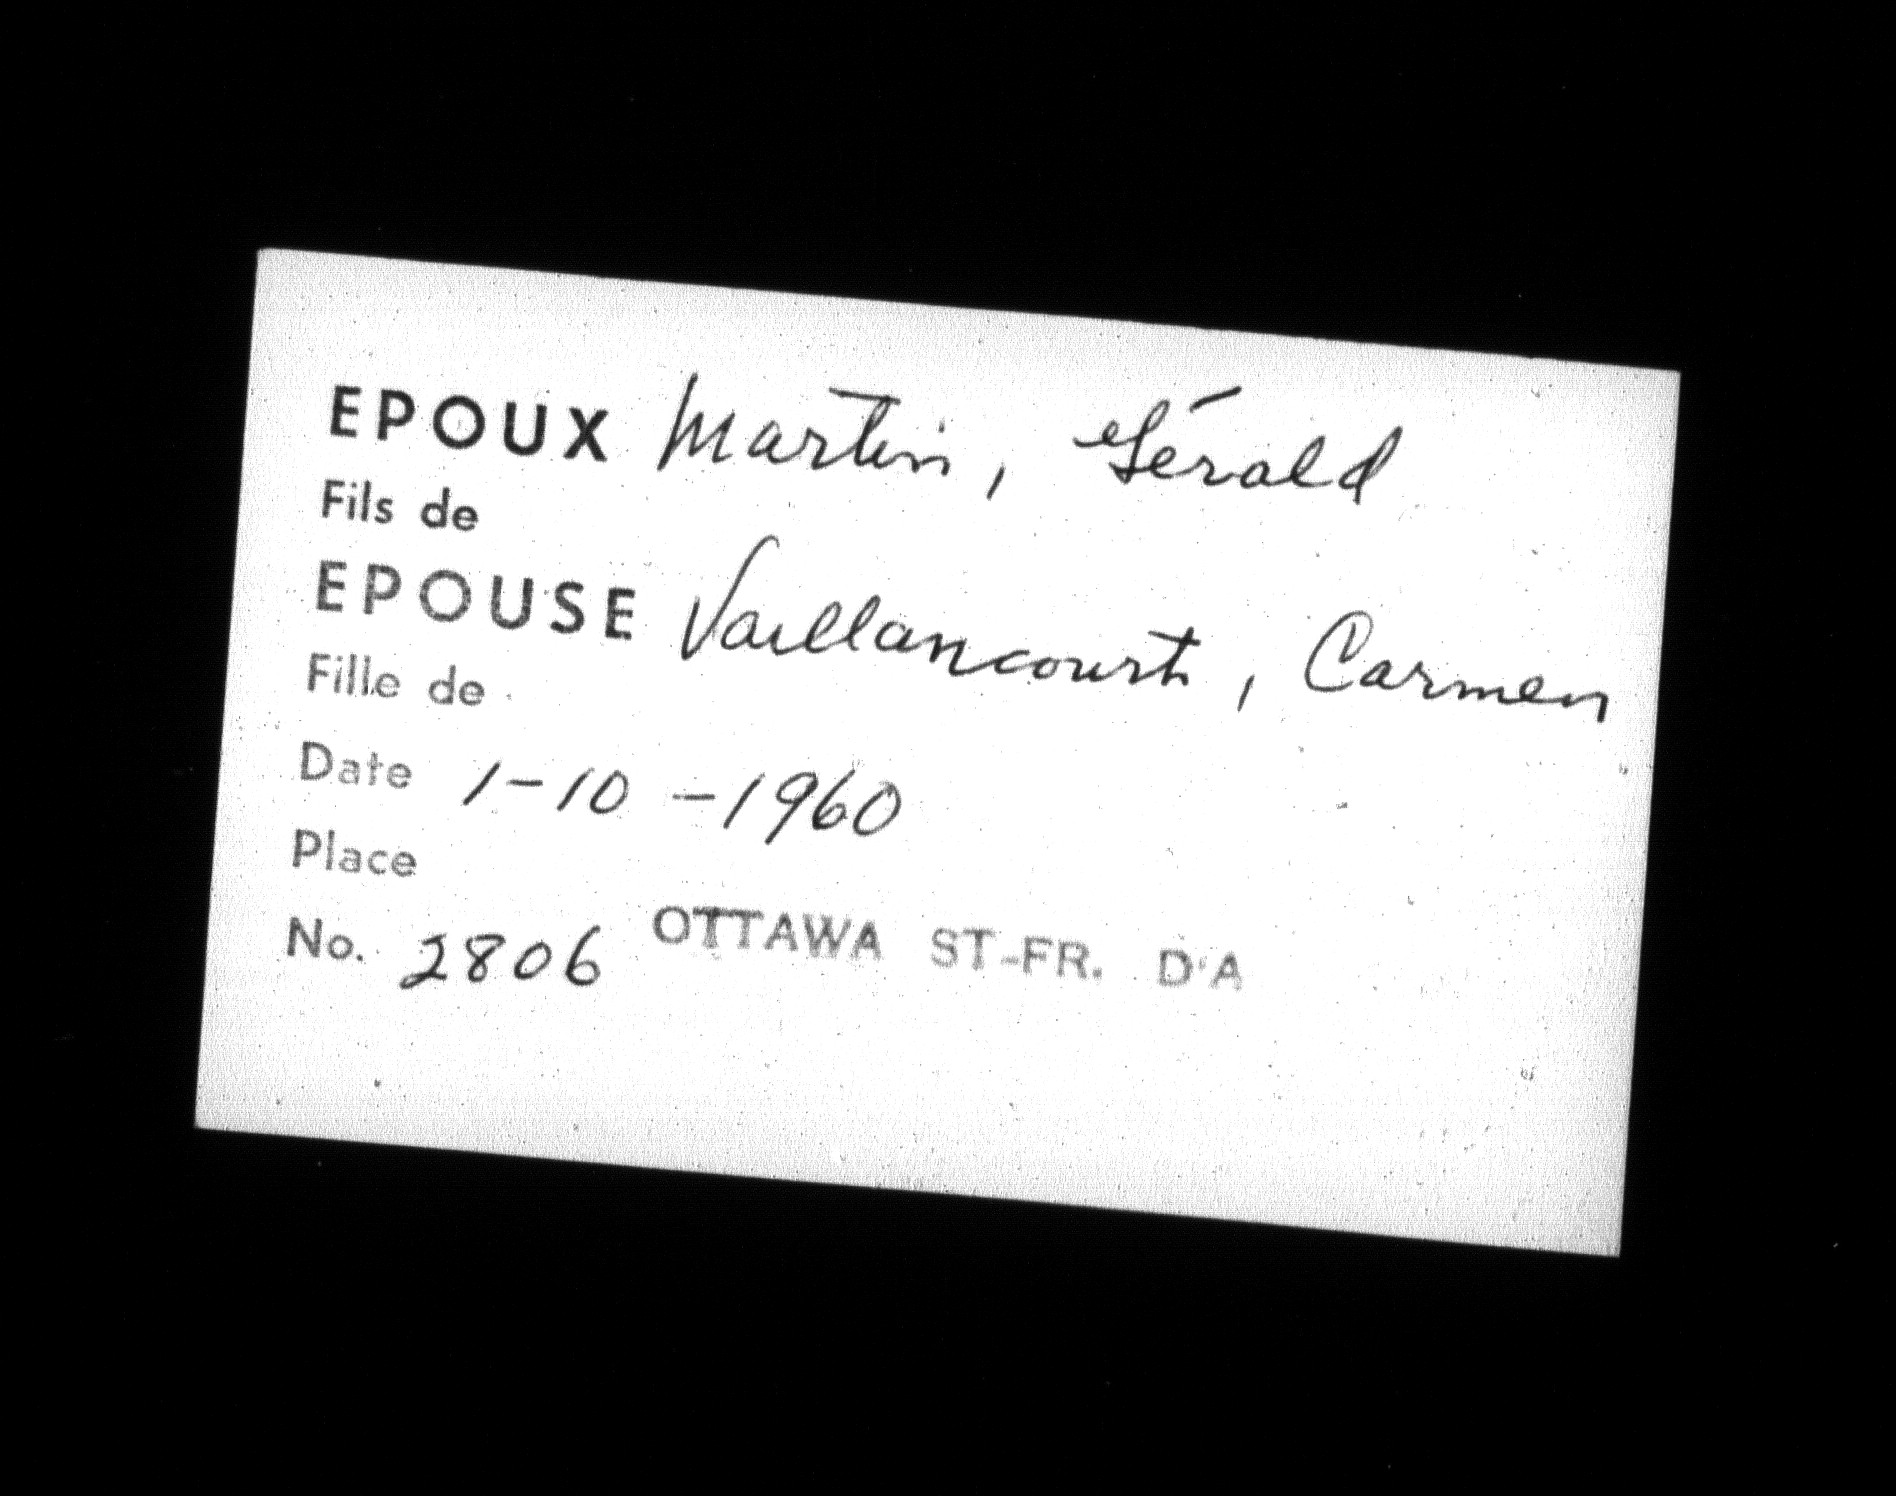 EPOUX Martin, Gérald
Fils de
EPOUSE Vaillancourt, Carmen
Fille de
Date 1-10-1960
Place
No. 2806 OTTAWA ST-FR. D'A